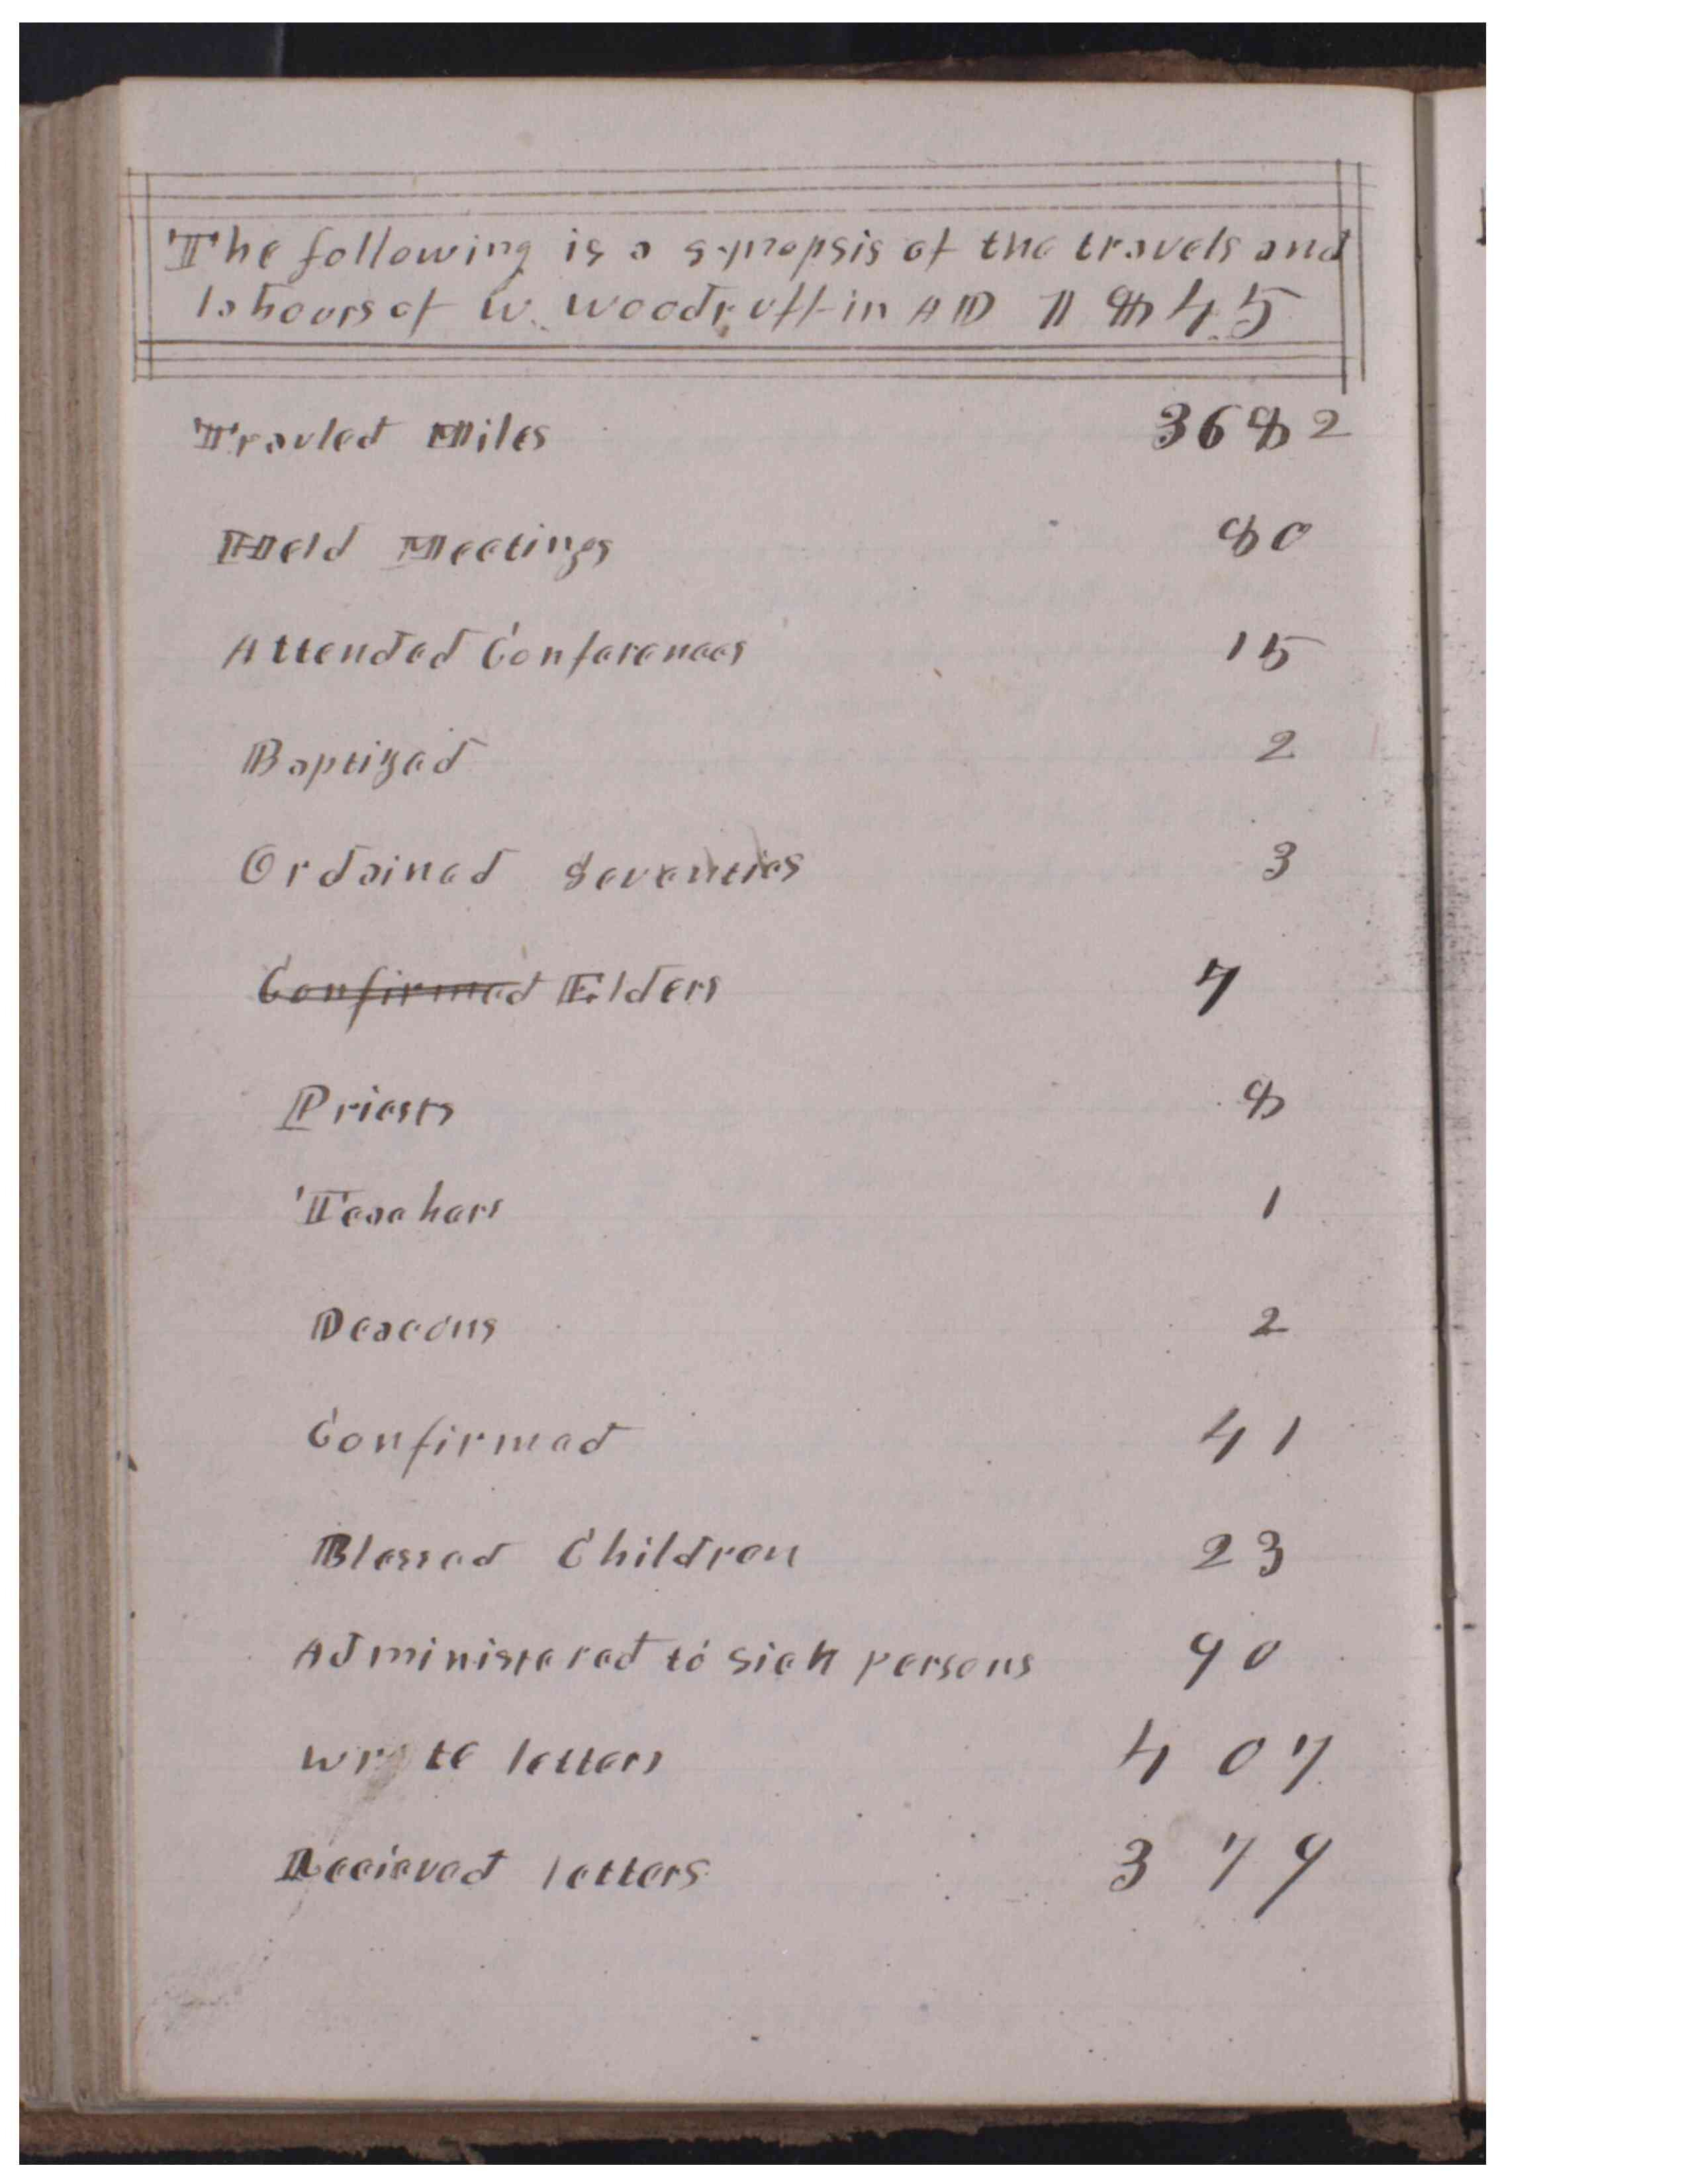 The following is a synopsis of the travels and
labours of W. Woodruff in AD 1845
Travled Miles 3682
Held Meetings 80
Attended Conferences 15
Baptized 2
Ordained Seventies 3
Confirmed Elders 7
Priests 8
Teachers 1
Deacons 2
Confirmed 41
Blessed Children 23
Administered to sick persons 90
wrote letters 407
Recieved letters 379